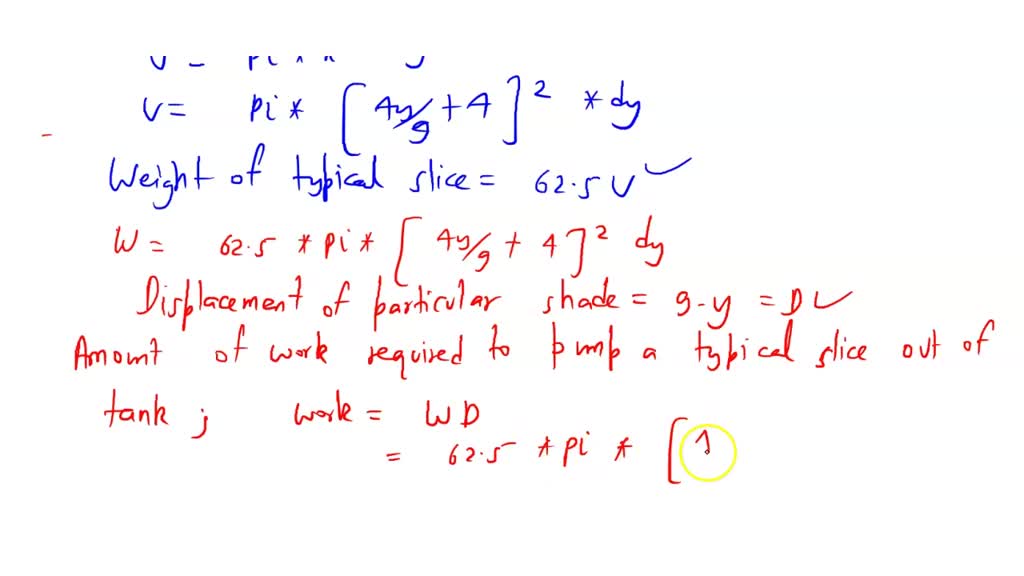 V = pi * [4y/9 + 4]2 * dy
Weight of typical slice = 62.5 V
W = 62.5 * pi * [4y/9 + 4]2 dy
Displacement of particular shade = 9-y = D
Amount of work required to pump a typical slice out of
tank ; work = WD
= 62.5 * pi * [